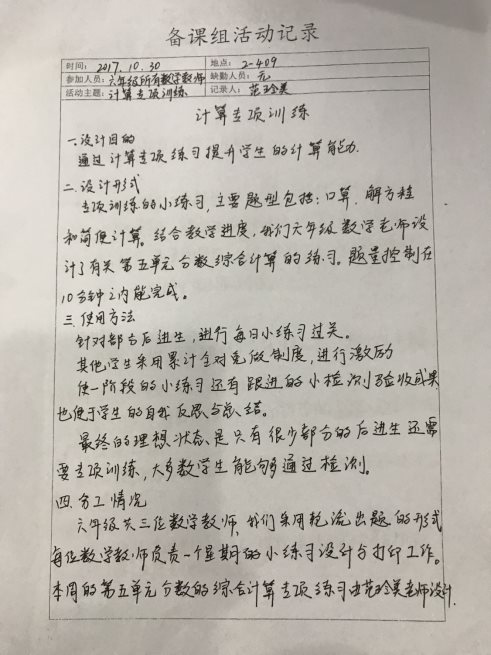 备课组活动记录
时间: 2017.10.30 地点: 2-409
参加人员: 六年级所有数学教师 缺勤人员: 无
活动主题: 计算专项训练 记录人: 范玲美
计算专项训练
一.设计目的
通过计算专项练习提升学生的计算能力.
二.设计形式
专项训练的小练习,主要题型包括:口算、解方程
和简便计算。结合教学进度,我们六年级数学老师设
计了有关第五单元分数综合计算的练习。题量控制在
10分钟之内能完成。
三.使用方法
针对部分后进生,进行每日小练习过关。
其他学生采用累计全对免做制度,进行激励
使一阶段的小练习还有跟进的小检测验收成果
也便于学生的自我反思与总结。
最终的理想状态是只有很少部分的后进生还需
要专项训练,大多数学生能够通过检测。
四.分工情况
六年级共三位数学教师,我们采用轮流出题的形式
每位数学教师负责一个星期的小练习设计与打印工作。
本周的第五单元分数的综合计算专项练习由范玲美老师设计.